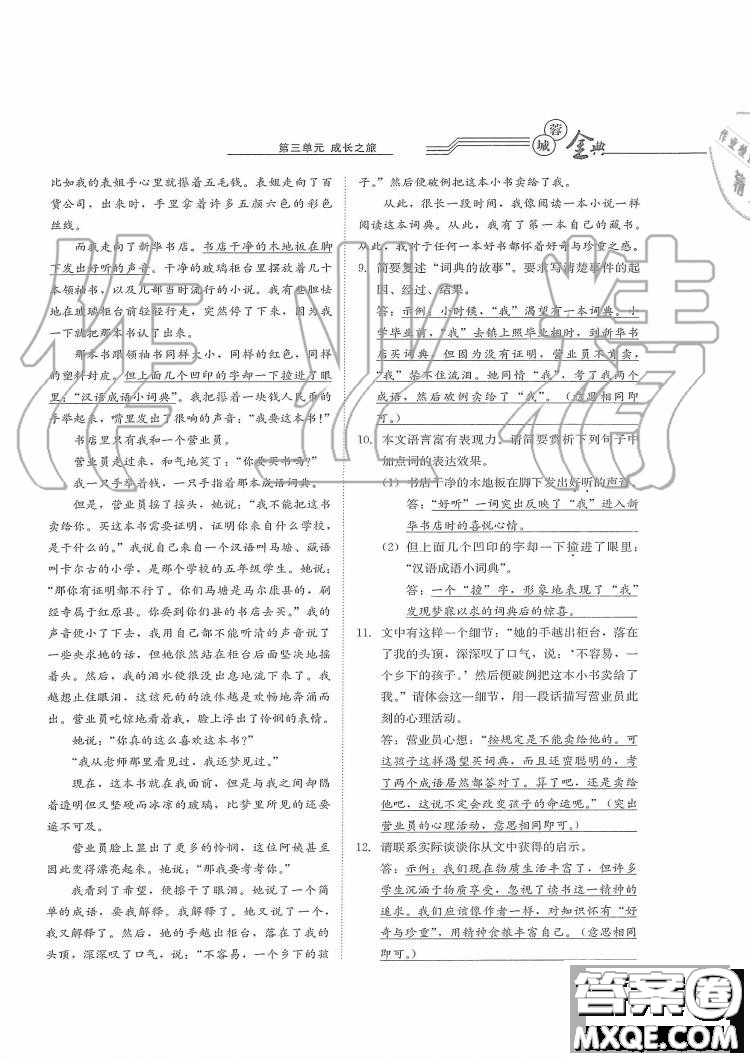 第三单元 成长之旅
蓉城
金典
比如我的表姐手心里就攥着五毛钱。表姐走向了百
货公司，出来时，手里拿着许多五颜六色的彩色
丝线。
而我走向了新华书店。书店干净的木地板在脚
下发出好听的声音。干净的玻璃柜台里摆着几十
本领袖书，以及几部当时流行的小说。我有些胆怯
地在玻璃柜台前轻轻行走，突然停了下来，因为我
一下就把那本书认了出来。
那本书跟领袖书同样大小，同样的红色，同样
的塑料封皮。但上面几个凹印的字却一下撞进了眼
里：“汉语成语小词典”。我把攥着一块钱人民币的
手举起来，嘴里发出了很响的声音：“我要这本书！”
书店里只有我和一个营业员。
营业员走过来，和气地笑了：“你要买书吗？”
我一只手举着钱，一只手指着那本成语词典。
但是，营业员摇了摇头，她说：“我不能把这书
卖给你。买这本书需要证明，证明你来自什么学校，
是干什么的。”我说自己来自一个汉语叫马塘、藏语
叫卡尔古的小学，是那个学校的五年级学生。她说：
“那你有证明都不行了。你们马塘是马尔康县的，刷
经寺属于红原县。你要到你们县的书店去买。”我的
声音便小了下去，我用都不能听清的声音说了
一些央求她的话，但她依然站在柜台后面坚决地摇
着头。然后，我的泪水便很没出息地流下来了。我
越想止住眼泪，这该死的的液体越是欢畅地奔涌而
出。营业员吃惊地看着我，脸上浮出了怜悯的表情。
她说：“你真的这么喜欢这本书？”
“我从老师那里看见过，我还梦见过。”
现在，这本书就在我面前，但是与我之间却隔
着透明但又坚硬而冰凉的玻璃，比梦里所见的还要
遥不可及。
营业员脸上显出了更多的怜悯，这位阿姨甚至
因此变得漂亮起来。她说：“那我要考考你。”
我看到了希望，便擦干了眼泪。她说了一个简
单的成语，要我解释。我解释了。她又说了一个，我
又解释了。然后，她的手越出柜台，落在了我的
头顶，深深叹了口气，说：“不容易，一个乡下的孩
子。”然后便破例把这本小书卖给了我。
从此，很长一段时间，我像阅读一本小说一样
阅读这本词典。从此，我有了第一本自己的藏书。
从此，我对于任何一本好书都怀着好奇与珍重之感。
9. 简要复述“词典的故事”。要求写清楚事件的起
因、经过、结果。
答：示例：小时候，“我”渴望有一本词典。小
学毕业前，“我”去镇上照毕业相时，到新华书
店买词典，但因为没有证明，营业员不肯卖，
“我”禁不住流泪。她同情“我”，考了我两个
成语，然后破例卖给了“我”。（意思相同即
可。）
10. 本文语言富有表现力。请简要赏析下列句子中
加点词的表达效果。
（1）书店干净的木地板在脚下发出好听的声音。
答：“好听”一词突出反映了“我”进入新
华书店时的喜悦心情。
（2）但上面几个凹印的字却一下撞进了眼里：
“汉语成语小词典”。
答：一个“撞”字，形象地表现了“我”
发现梦寐以求的词典后的惊喜。
11. 文中有这样一个细节：“她的手越出柜台，落在
了我的头顶，深深叹了口气，说：‘不容易，一
个乡下的孩子。’然后便破例把这本小书卖给了
我。”请体会这一细节，用一段话描写营业员此
刻的心理活动。
答：营业员心想：“按规定是不能卖给他的。可
这孩子这样渴望买词典，而且还蛮聪明的，考
了两个成语居然都答对了。算了吧，还是卖给
他吧，这说不定会改变孩子的命运呢。”（突出
营业员的心理活动，意思相同即可。）
12. 请联系实际谈谈你从文中获得的启示。
答：示例：我们现在物质生活丰富了，但许多
学生沉湎于物质享受，忽视了读书这一精神的
追求。我们应该像作者一样，对知识怀有“好
奇与珍重”，用精神食粮丰富自己。（意思相同
即可。）
作业精灵
答案圈
MXQE.COM